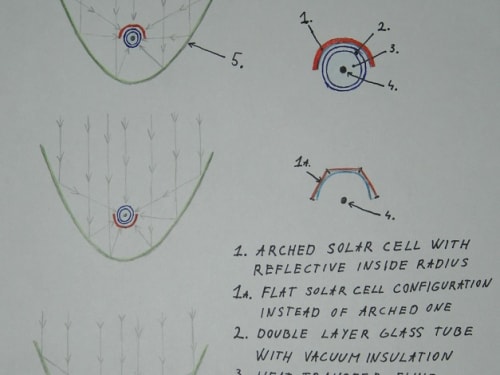 1.
2.
3.
4.
5.
1A.
4.
1. ARCHED SOLAR CELL WITH
REFLECTIVE INSIDE RADIUS
1A. FLAT SOLAR CELL CONFIGURATION
INSTEAD OF ARCHED ONE
2. DOUBLE LAYER GLASS TUBE
WITH VACUUM INSULATION
3. HEAT TRANSFER FLUID